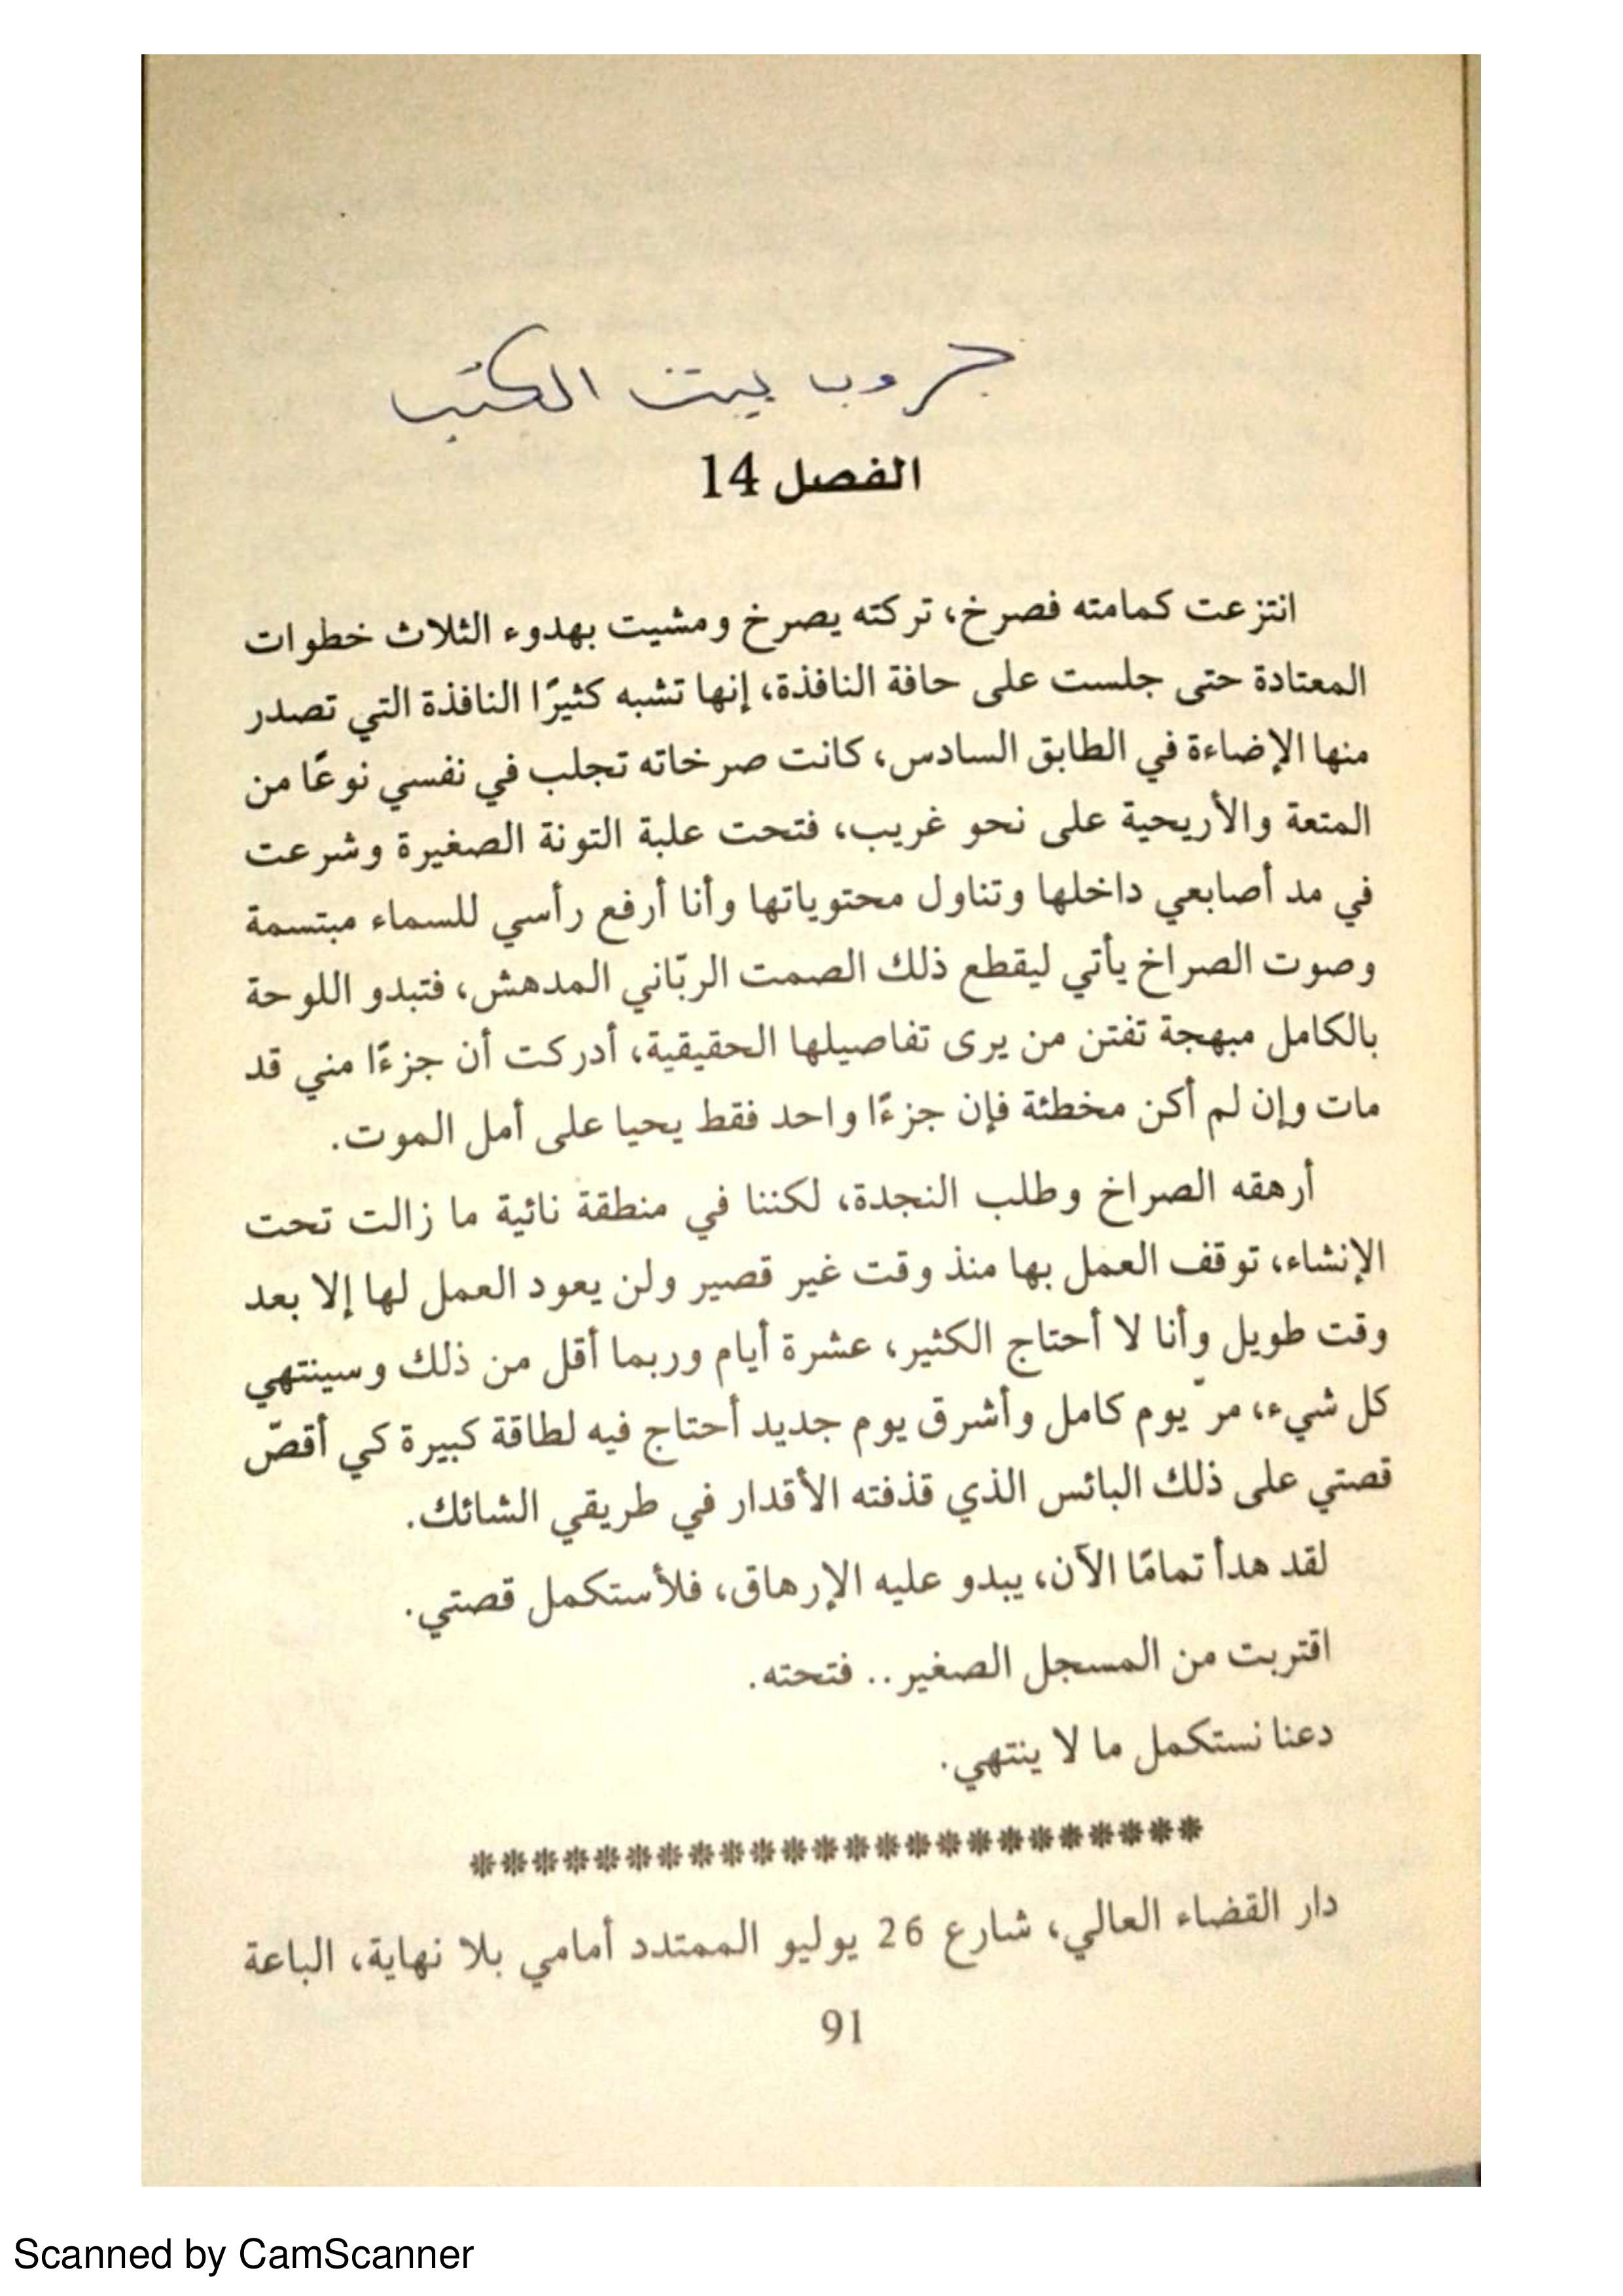 جروب بيت الكتب
الفصل 14
انتزعت كمامته فصرخ، تركته يصرخ ومشيت بهدوء الثلاث خطوات
المعتادة حتى جلست على حافة النافذة، إنها تشبه كثيرًا النافذة التي تصدر
منها الإضاءة في الطابق السادس، كانت صرخاته تجلب في نفسي نوعًا من
المتعة والأريحية على نحو غريب، فتحت علبة التونة الصغيرة وشرعت
في مد أصابعي داخلها وتناول محتوياتها وأنا أرفع رأسي للسماء مبتسمة
وصوت الصراخ يأتي ليقطع ذلك الصمت الربّاني المدهش، فتبدو اللوحة
بالكامل مبهجة تفتن من يرى تفاصيلها الحقيقية، أدركت أن جزءًا مني قد
مات وإن لم أكن مخطئة فإن جزءًا واحد فقط يحيا على أمل الموت.
أرهقه الصراخ وطلب النجدة، لكننا في منطقة نائية ما زالت تحت
الإنشاء، توقف العمل بها منذ وقت غير قصير ولن يعود العمل لها إلا بعد
وقت طويل وأنا لا أحتاج الكثير، عشرة أيام وربما أقل من ذلك وسينتهي
كل شيء، مرّ يوم كامل وأشرق يوم جديد أحتاج فيه لطاقة كبيرة كي أقصّ
قصتي على ذلك البائس الذي قذفته الأقدار في طريقي الشائك.
لقد هدأ تمامًا الآن، يبدو عليه الإرهاق، فلأستكمل قصتي.
اقتربت من المسجل الصغير.. فتحته.
دعنا نستكمل ما لا ينتهي.
************************
دار القضاء العالي، شارع 26 يوليو الممتدد أمامي بلا نهاية، الباعة
91
Scanned by CamScanner